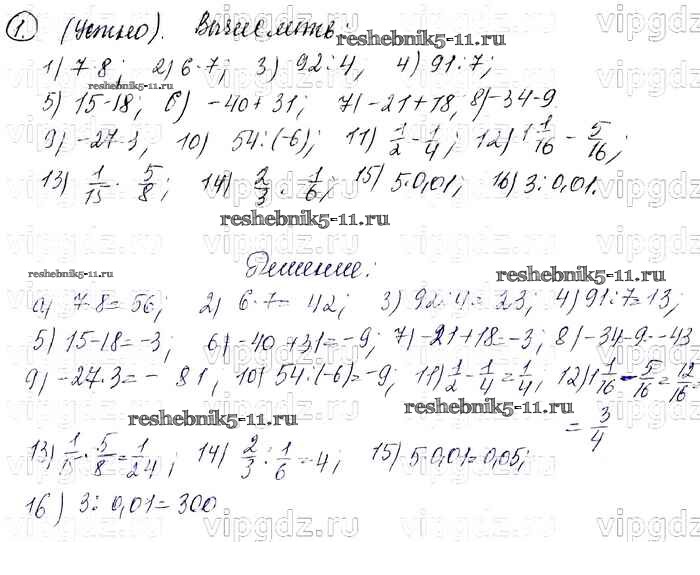 1. (Устно). Вычислить:
1) 7·8; 2) 6·7; 3) 92:4, 4) 91:7;
5) 15-18; 6) -40+31; 7) -21+18, 8) -34-9
9) -27·3; 10) 54:(-6); 11) 1/2 - 1/4; 12) 1 1/16 - 5/16;
13) 1/15 · 5/8; 14) 2/3 : 1/6; 15) 5·0,01; 16) 3:0,01.
Решение:
1) 7·8=56; 2) 6·7=42; 3) 92:4=23; 4) 91:7=13;
5) 15-18=-3; 6) -40+31=-9; 7) -21+18=-3; 8) -34-9=-43
9) -27·3=-81, 10) 54·(-6)=-9; 11) 1/2 - 1/4 = 1/4, 12) 1 1/16 - 5/16 = 12/16
= 3/4
13) 1/15 · 5/8 = 1/24; 14) 2/3 : 1/6 = 4; 15) 5·0,01=0,05;
16) 3:0,01=300
reshebnik5-11.ru
reshebnik5-11.ru
reshebnik5-11.ru
reshebnik5-11.ru
reshebnik5-11.ru
reshebnik5-11.ru
reshebnik5-11.ru
vipgdz.ru